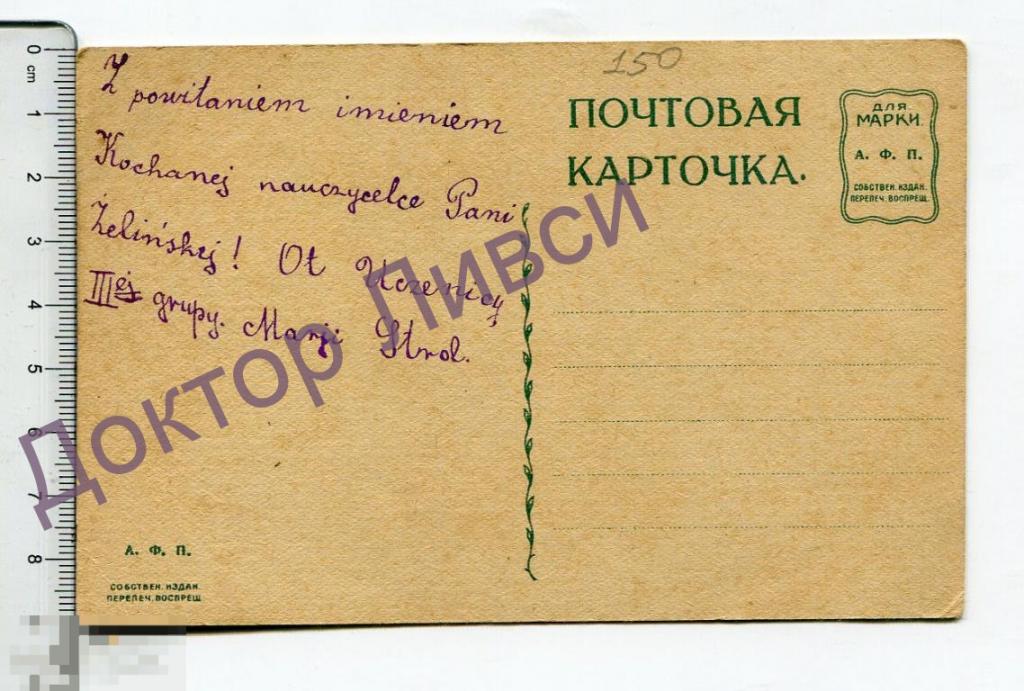 150
Z powitaniem imieniem
Kochanej nauczycelce Pani
Żelińskej! Ot Uczenicy
IIIej grupy. Marji Strol.
ПОЧТОВАЯ
КАРТОЧКА.
ДЛЯ
МАРКИ.
А. Ф. П.
СОБСТВЕН. ИЗДАН.
ПЕРЕПЕЧ. ВОСПРЕЩ.
А. Ф. П.
СОБСТВЕН. ИЗДАН.
ПЕРЕПЕЧ. ВОСПРЕЩ.
Доктор Ливси
0 cm 1 2 3 4 5 6 7 8